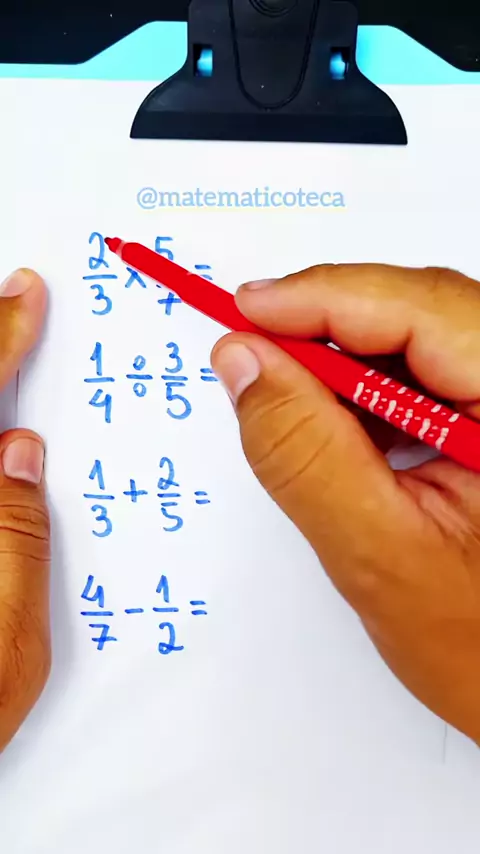 @matematicoteca
2/3 × 5/7 =
1/4 ÷ 3/5 =
1/3 + 2/5 =
4/7 - 1/2 =